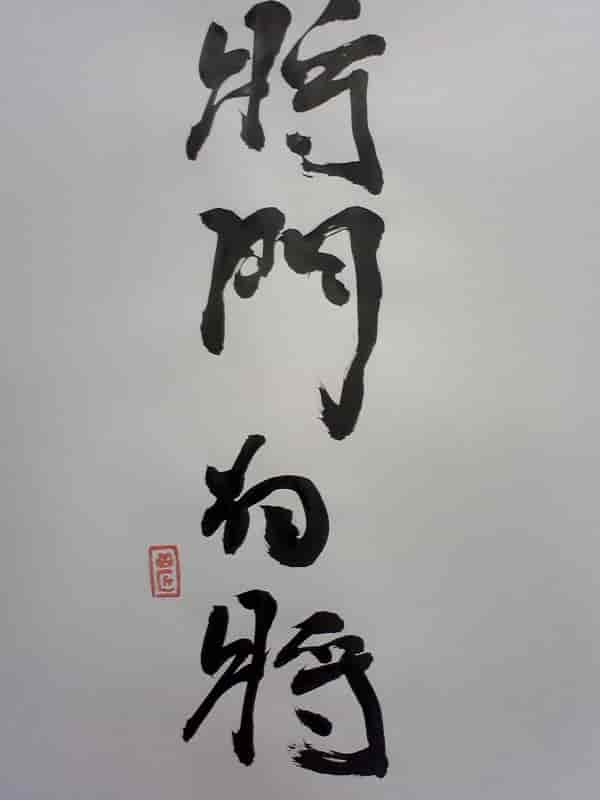 將門有將